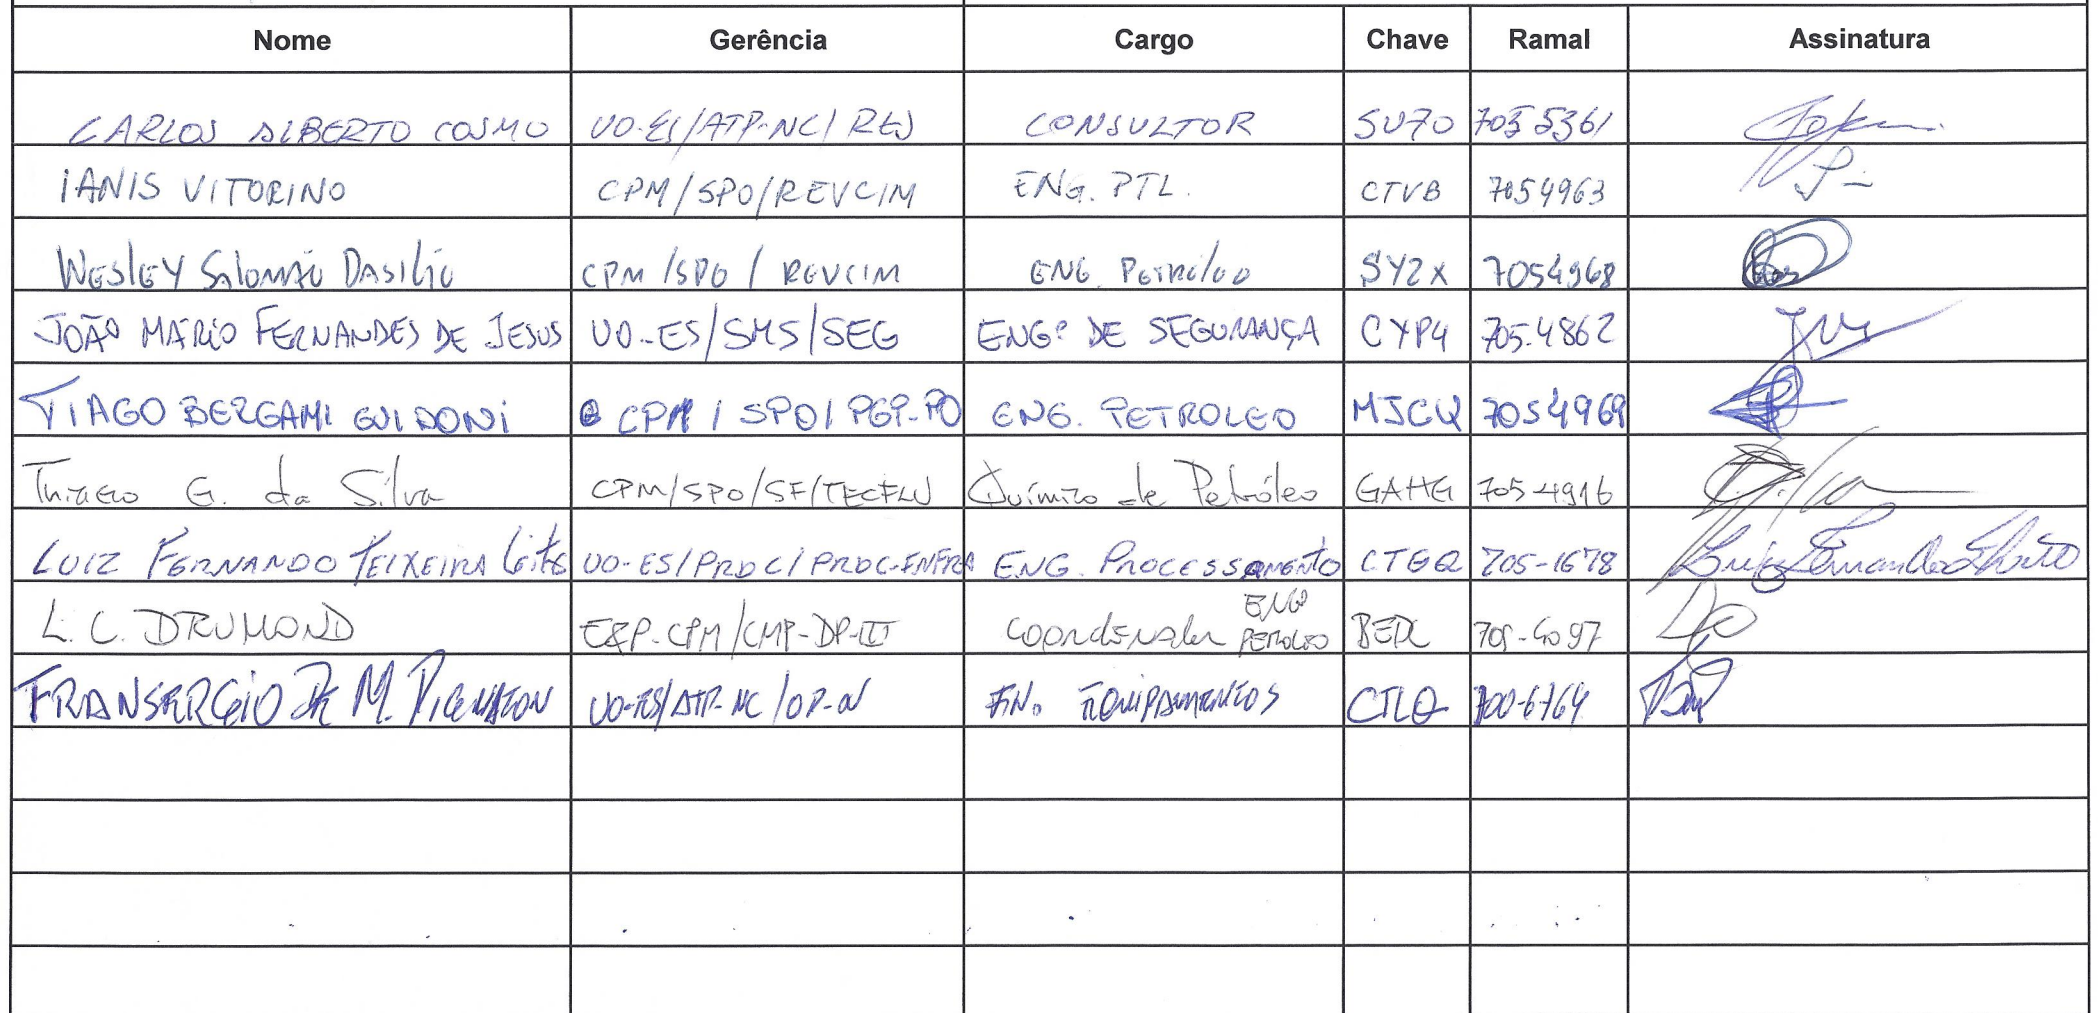 Nome Gerência Cargo Chave Ramal Assinatura
CARLOS ALBERTO COSMO UO-ES/ATP-NC/RES CONSULTOR SU70 7035361
IANIS VITORINO CPM/SPO/REVCIM ENG. PTL. CTVB 7054963
WESLEY SALOMÃO DASILIO CPM/SPO/REVCIM ENG. PETRÓLEO SY2X 7054968
JOÃO MÁRIO FERNANDES DE JESUS UO-ES/SMS/SEG ENGº DE SEGURANÇA CYP4 705-4862
TIAGO BERGAMI GUIDONI CPM/SPO/PGP-PO ENG. PETROLEO MJCQ 7054969
Thiago G. da Silva CPM/SPO/SF/TECFLU Químico de Petróleo GAHG 705-4916
LUIZ FERNANDO TEIXEIRA Leite UO-ES/PROC/PROC-ENFRA ENG. PROCESSAMENTO CTGQ 705-1678
L. C. DRUMOND E&P-CPM/CMP-DP-III Coordenador ENGº PETROLEO 705-4097
FRANSERGIO DE M. UO-ES/ATP-NC/OP-N EQUIPAMENTOS CTLQ 700-6764